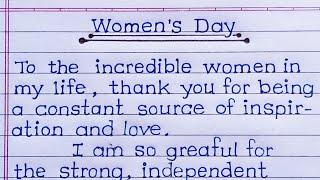 Women's Day
To the incredible women in
my life, thank you for being
a constant source of inspir-
ation and love.
I am so greaful for
the strong, independent